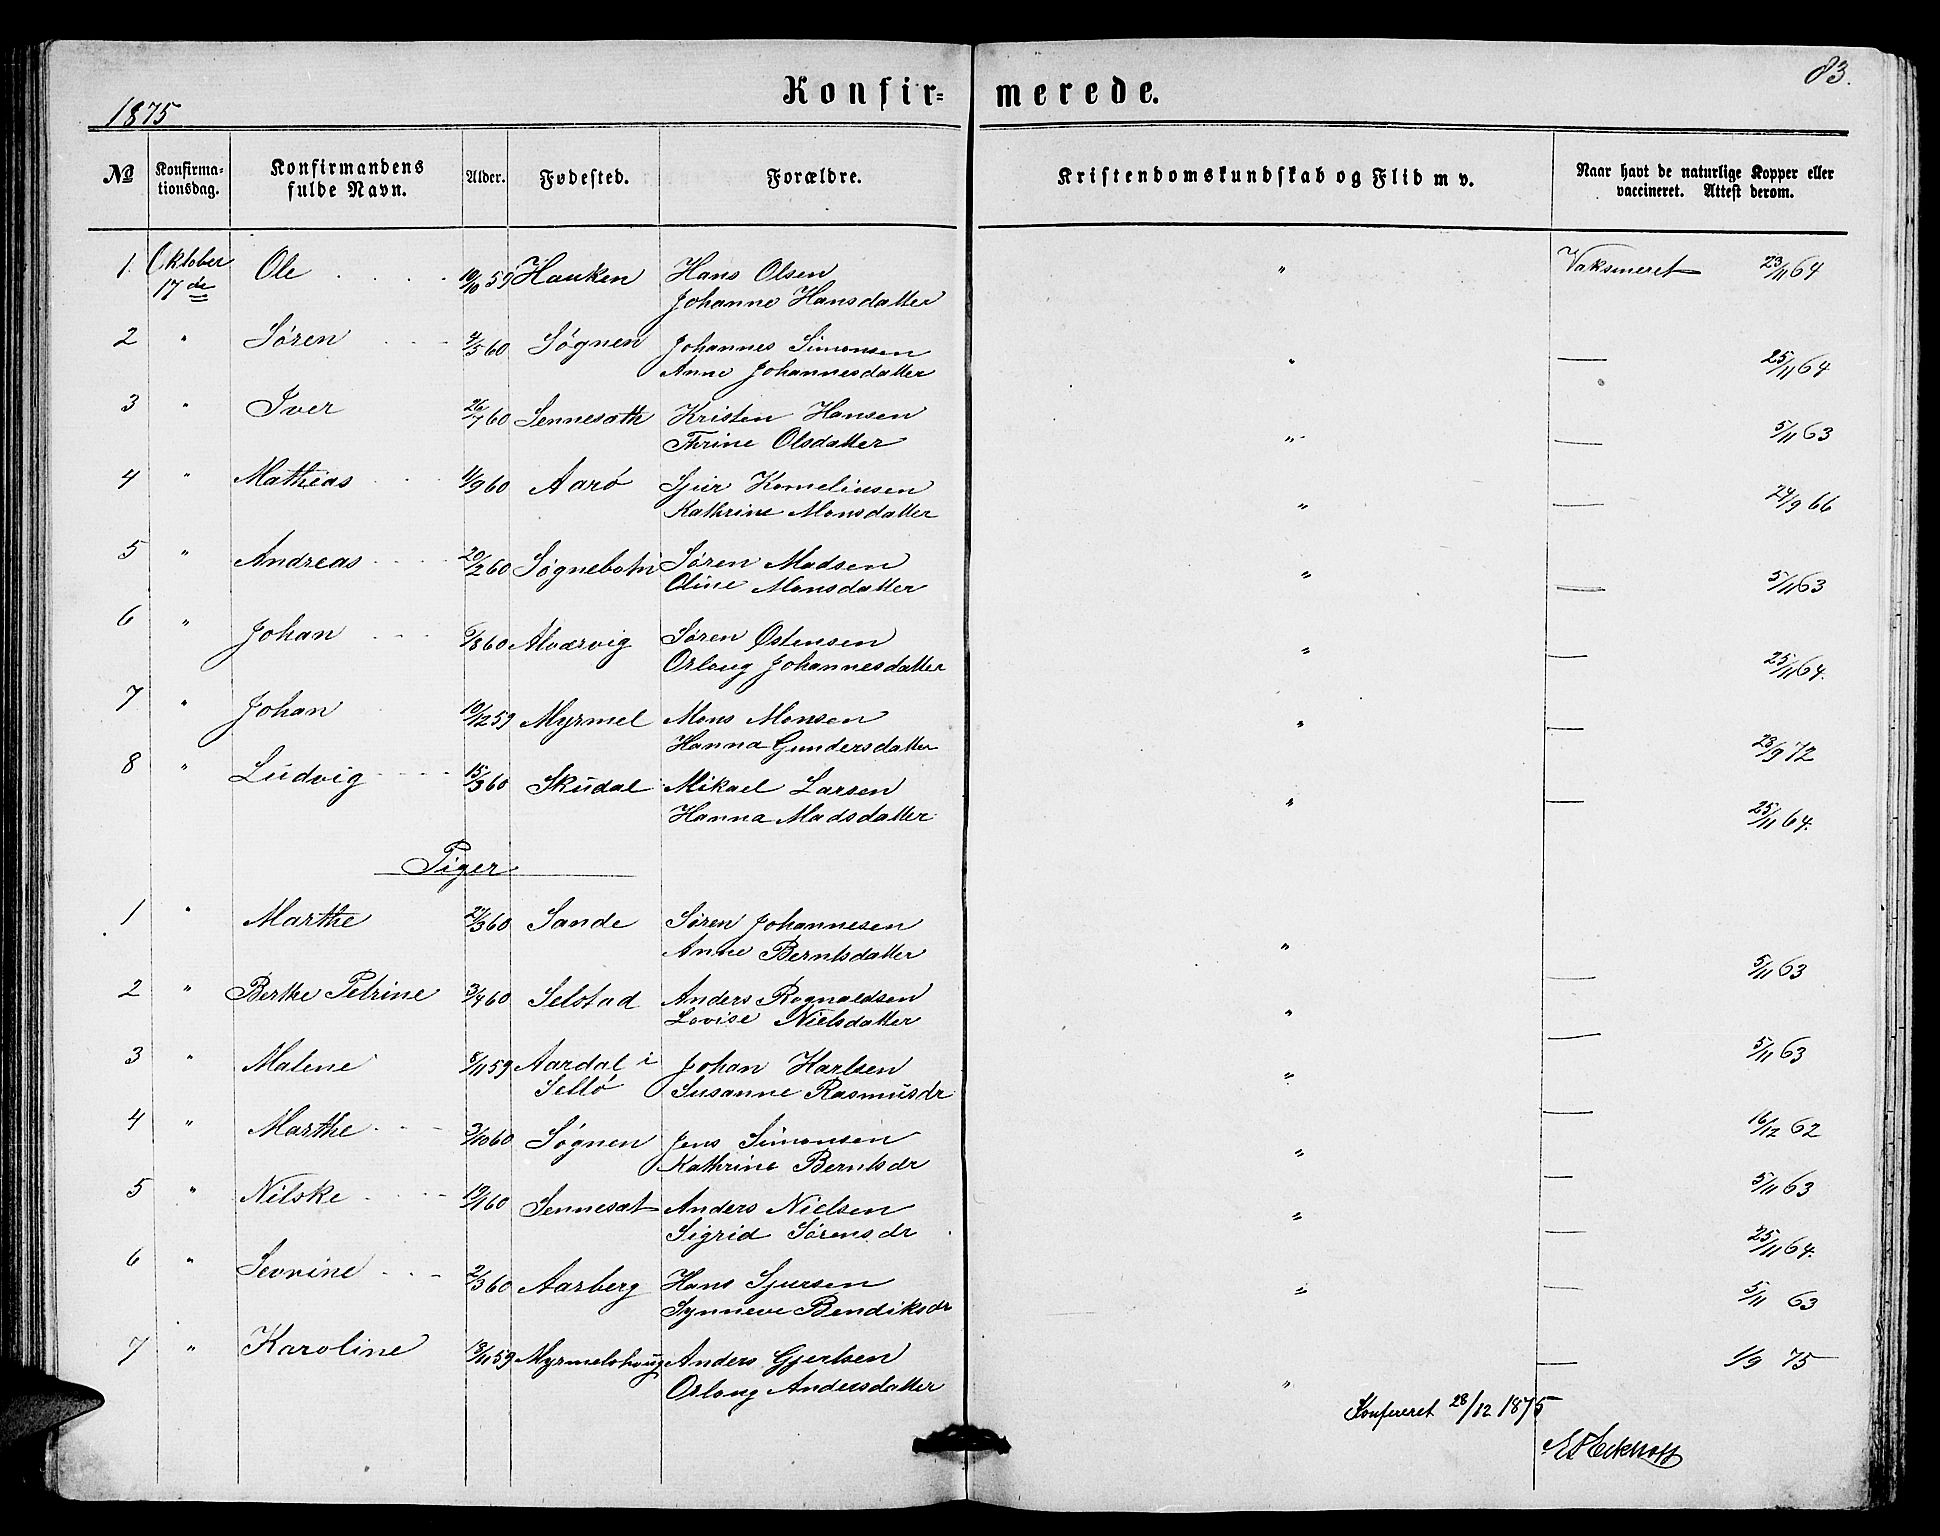 1875
Konfir=merede.
83.
No
Konfirma-tionsdag.
Konfirmandens fulde Navn.
Alder.
Fødested.
Forældre.
Kristendomskundskab og Flid m v.
Naar havt de naturlige Kopper eller vaccineret. Attest derom.
1. Oktober 17de Ole 10/10 59 Hauken Hans Olsen " Vaksineret 23/11 64
Johanne Hansdatter
2 " Søren /5 60 Søgnen Johannes Simonsen " — 25/11 64
Anne Johannesdatter
3 " Iver 26/7 60 Sennesæth Kristen Hansen " — 5/11 63
Thrine Olsdatter
4 " Mathias /9 60 Aarø Sjur Kornelinsen " — 24/9 66
Kathrine Monsdatter
5 " Andreas 20/2 60 Søgnebotn Søren Madsen " — 5/11 63
Oline Monsdatter
6 " Johan /8 60 Alværvig Søren Østensen " — 25/11 64.
Orlaug Johannesdatter
7 " Johan 10/12 59 Myrmel Mons Monsen " — 23/9 72
Hanna Gundersdatter
8 " Ludvig 15/3 60 Skudal Mikael Larsen " — 25/11 64.
Hanna Madsdatter
Piger
1 " Marthe /3 60 Sande Søren Johannesen " — 5/11 63
Anne Berntsdatter
2 " Berthe Petrine 3/4 60 Selstad Anders Rognaldsen " — 5/11 63
Lovise Nielsdatter
3 " Malene 8/11 59 Aardal i Johan Karlsen " — 16/12 62
Sellø Susanne Rasmusdr
4 " Marthe 3/10 60 Søgnen Jens Simonsen " — 5/11 63
Kathrine Berntsdr
5 " Nilske 19/1 60 Sennesæt Anders Nielsen " — 25/11 64.
Sigrid Sørensdr
6 " Sevrine 2/3 60 Aarberg Hans Sjursen " — 5/11 63
Synneve Bendiksdr
7 " Karoline 13/11 59 Myrmelshoug Anders Gjertsen " — 1/9 75
Orlaug Andersdatter
Konfereret 28/12 1875
Eckhoff